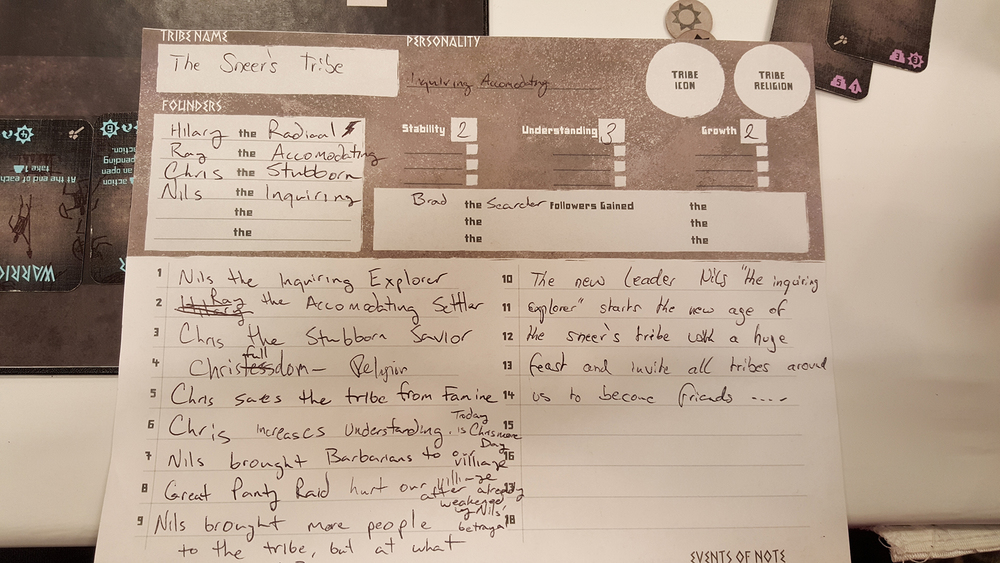 TRIBE NAME
The Sneer's tribe
PERSONALITY
Inquiring Accomodating
TRIBE ICON
TRIBE RELIGION
FOUNDERS
Hilary the Radical
Ray the Accomodating
Chris the Stubborn
Nils the Inquiring
the
the
Stability 2
Understanding 3
Growth 2
Brad the Searcher Followers Gained the
the the
the the
1 Nils the Inquiring Explorer
2 Hilary Ray the Accomodating Settler
3 Chris the Stubborn Savior
4 Christessdom full - Religion
5 Chris saves the tribe from famine
6 Chris increases Understanding. Today is Chrismore Day
7 Nils brought Barbarians to our village
8 Great Panty Raid hurt our village after already weakened by Nils' betrayal
9 Nils brought more people
to the tribe, but at what
10 The new leader Nils "the inquiring
11 Explorer" starts the new age of
12 the sneer's tribe with a huge
13 feast and invite all tribes around
14 us to become friends ....
15
16
17
18
EVENTS OF NOTE
WARRIO
At the end of each
take 1
action
spending
an open
action
4
6
5 1
3 3